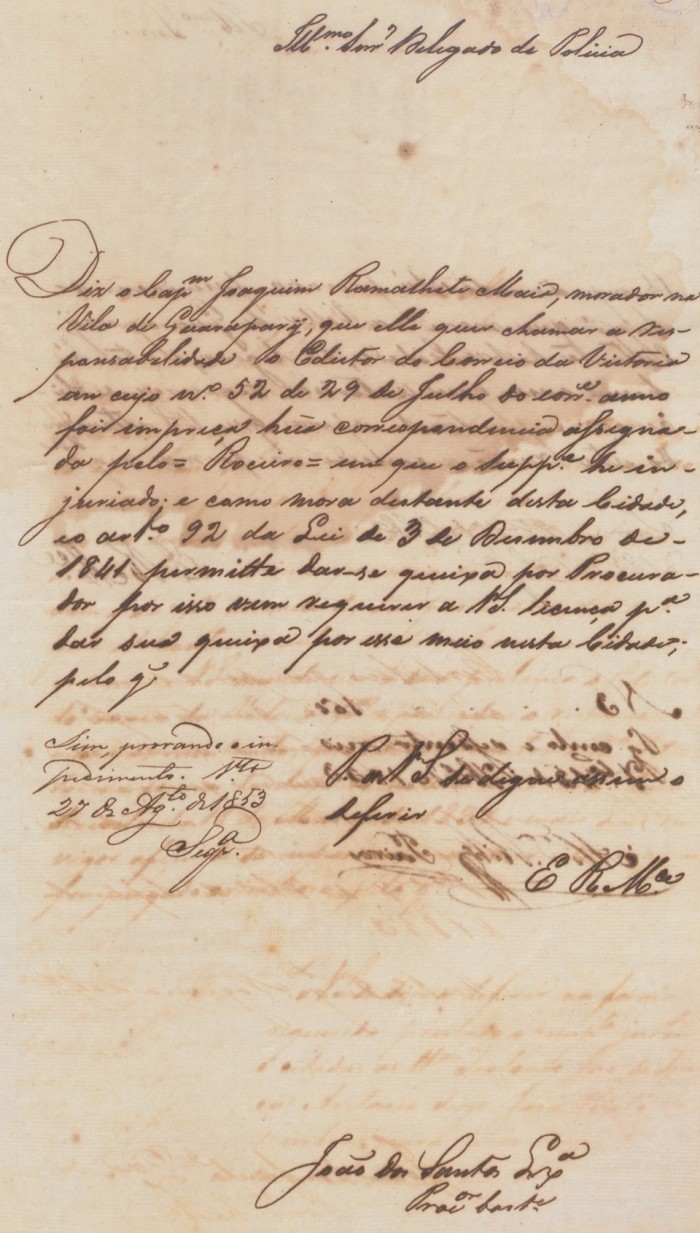 Ill.mo Snr Delegado de Policia
Diz o Capm Joaquim Ramalhete Maia, morador na
Vila de Guarapary, que elle quer chamar a res-
ponsabelidade o Edictor do Correio da Victoria
em cujo n.o 52 de 29 de Julho do corr.e anno
foi impreça hũa correspondencia assigna-
da pelo = Roceiro = em que o Supp.e he in-
juriado; e como mora destante desta Cidade,
e o art.o 92 da Lei de 3 de Desembro de
1841 permitte dar-se queixa por Procura-
dor por isso vem requerer a V S. licença p.a
dar sua queixa por esse meio nesta Cidade;
pelo q
Sim, provando o im
pedimento. V.ta
27 de Ag.to de 1853
P. a V. S. se digne assim o
deferir
E R M.ce
João dos Santos
Proc.or bast.e